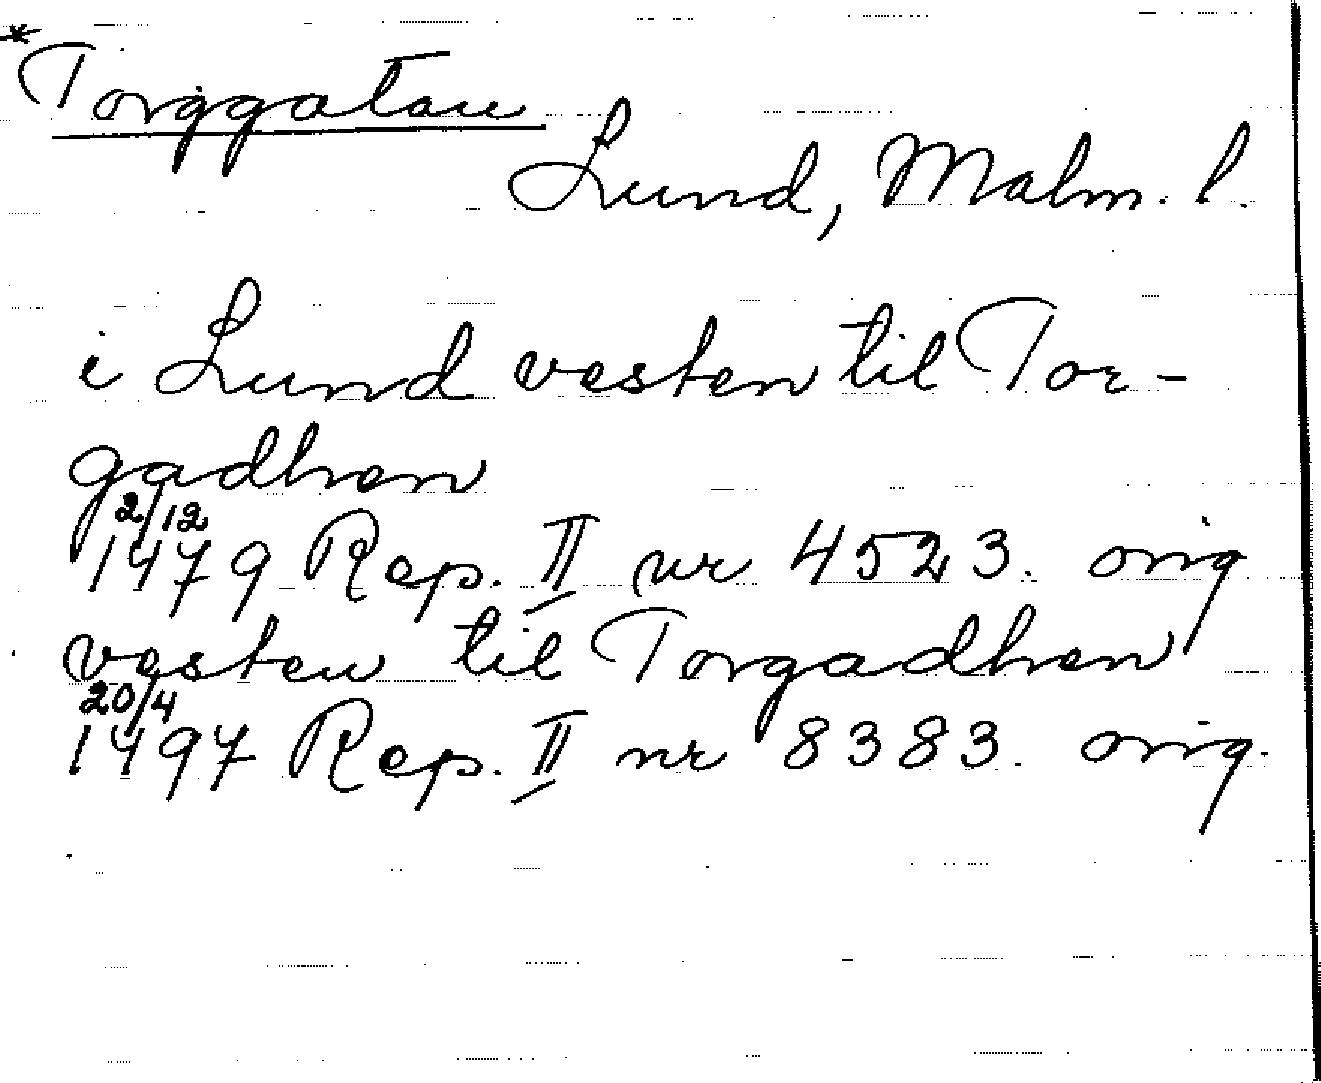 *Torggatan
Lund, Malm. l.
i Lund vesten til Tor-
gadhen
2/12
1479 Rep. II nr 4523. orig
vesten til Torgadhen
20/4
1497 Rep. II nr 8383. orig.